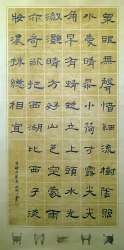 泉眼無聲惜細流樹陰照
水愛晴柔小荷才露尖尖
角早有蜻蜓立上頭水光
瀲灩晴方好山色空濛雨
亦奇欲把西湖比西子淡
妝濃抹總相宜